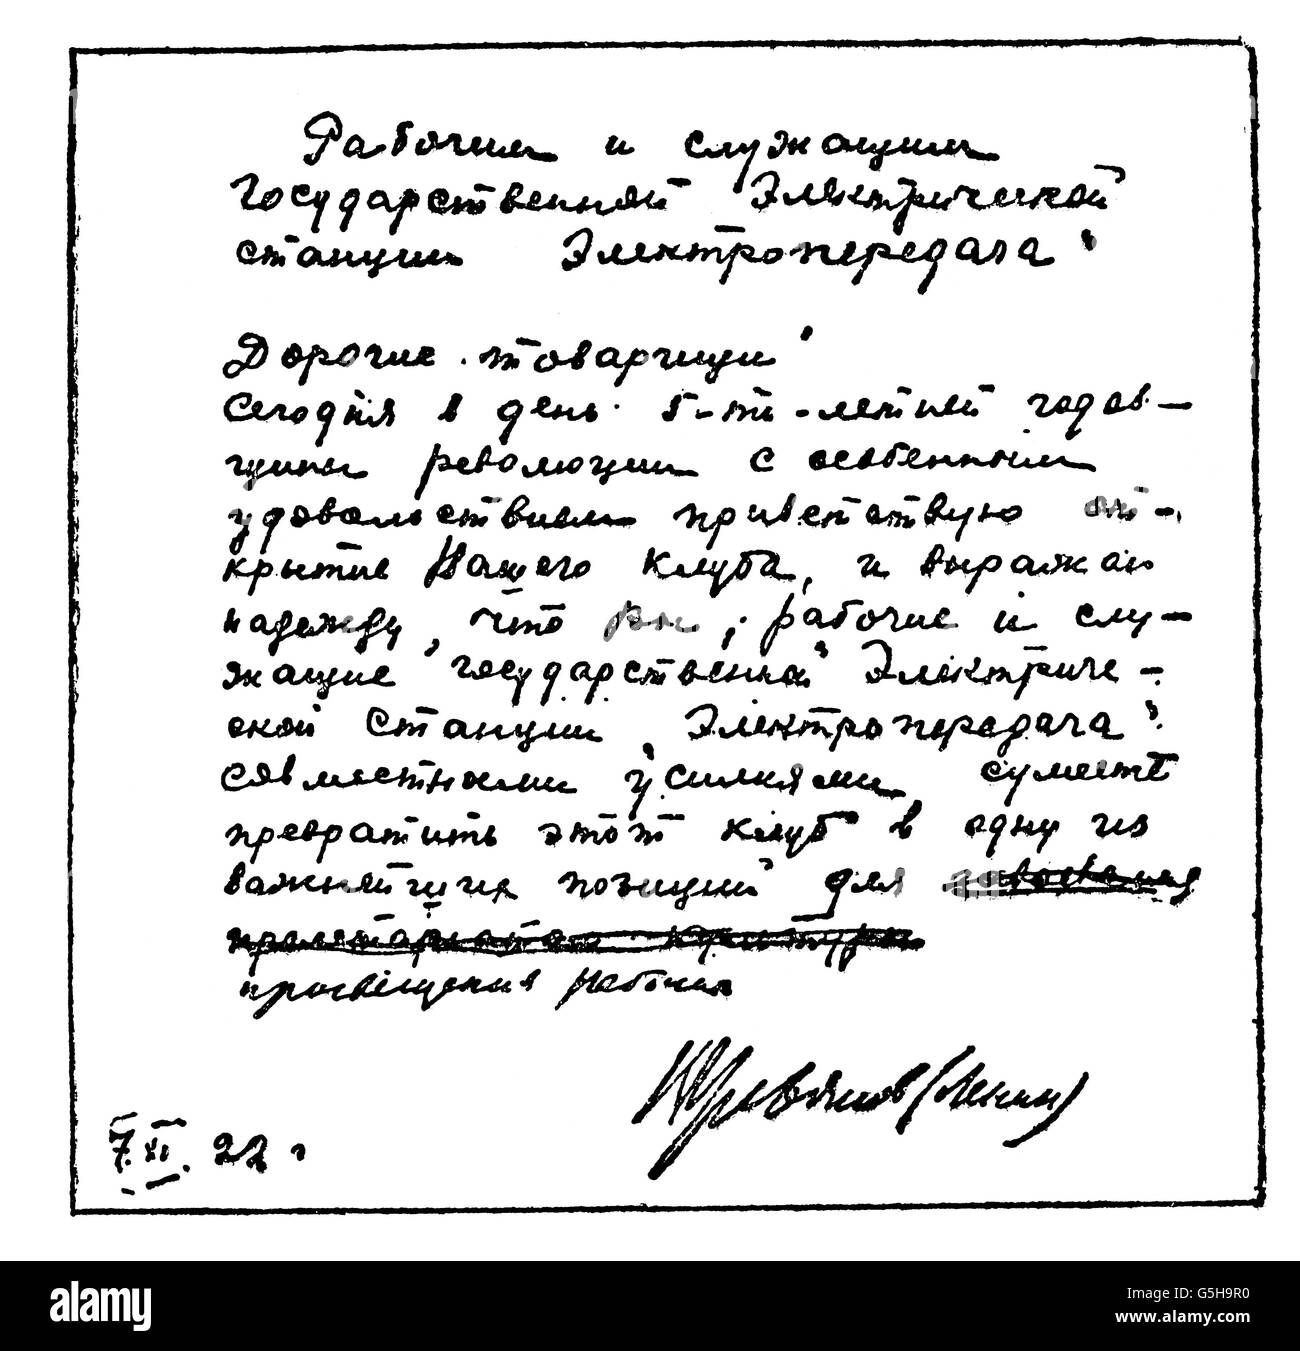 Рабочим и служащим
Государственной Электрической
станции Электропередача"
Дорогие товарищи
Сегодня в день 5-ти-летней годов-
щины революции с особенным
удовольствием приветствую от-
крытие Вашего клуба, и выражаю
надежду, что вы, рабочие и слу-
жащие Государственной Электриче-
ской станции Электропередача"
совместными усилиями сумеете
превратить этот клуб в одну из
важнейших позиций для
просвещения рабочих
В Ульянов (Ленин)
7.XI.22 г
alamy
Image ID: G5H9R0
www.alamy.com